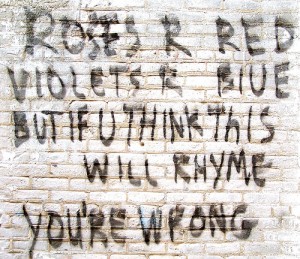 ROSES R RED
VIOLETS R BLUE
BUT IF U THINK THIS
WILL RHYME
YOU'RE WRONG